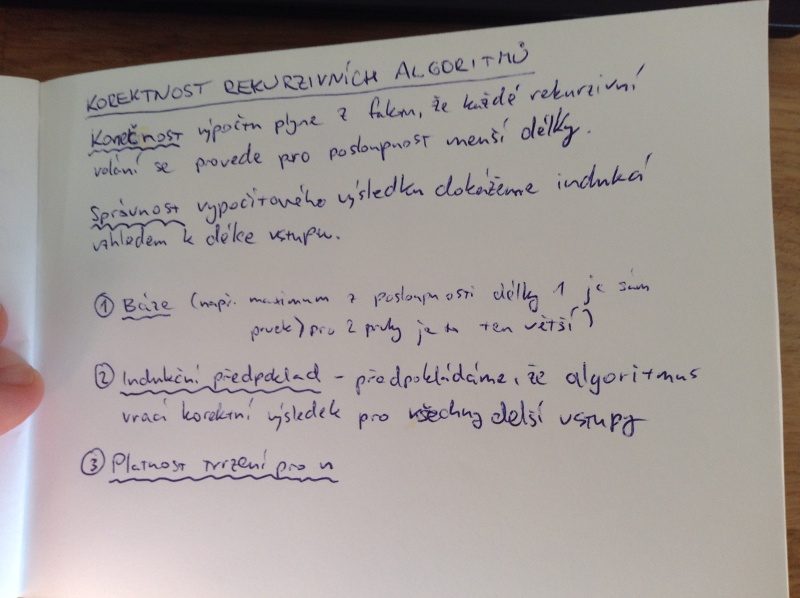 KOREKTNOST REKURZIVNÍCH ALGORITMŮ
Konečnost výpočtu plyne z faktu, že každé rekurzivní
volání se provede pro posloupnost menší délky.
Správnost vypočítového výsledku dokážeme indukcí
vzhledem k délce vstupu.
① Báze (např. maximum z posloupnosti délky 1 je sám
prvek) pro 2 prvky je to ten větší)
② Indukční předpoklad - předpokládáme, že algoritmus
vrací korektní výsledek pro všechny delší vstupy
③ Platnost tvrzení pro n